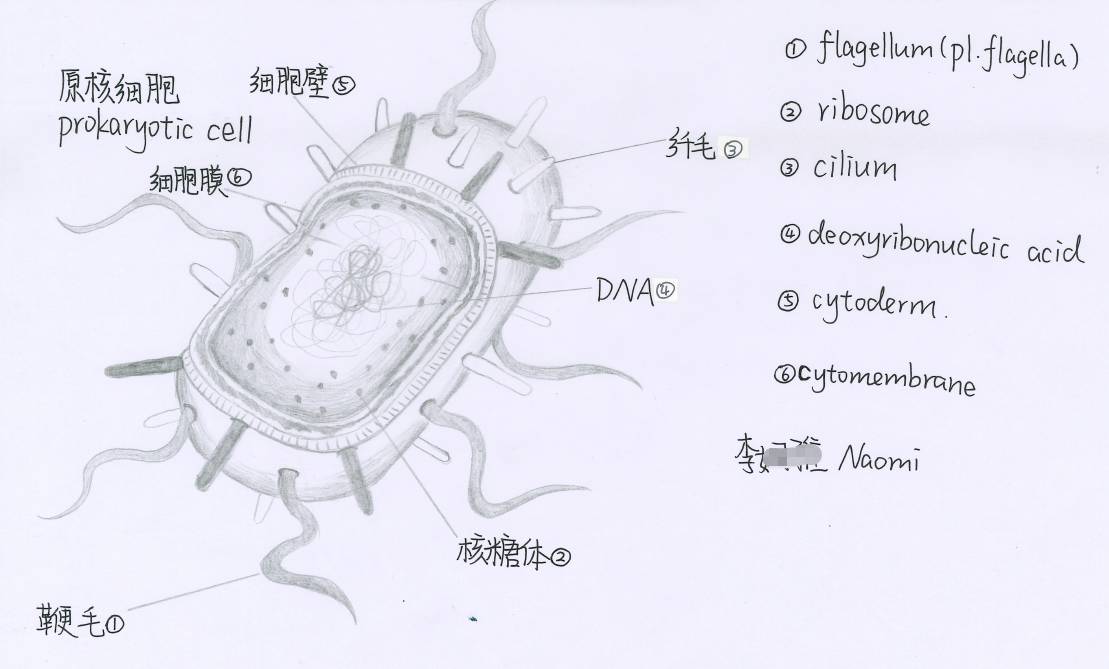 原核细胞
prokaryotic cell
细胞壁⑤
细胞膜⑥
纤毛③
DNA④
核糖体②
鞭毛①
① flagellum (pl. flagella)
② ribosome
③ cilium
④ deoxyribonucleic acid
⑤ cytoderm.
⑥ cytomembrane
李 Naomi